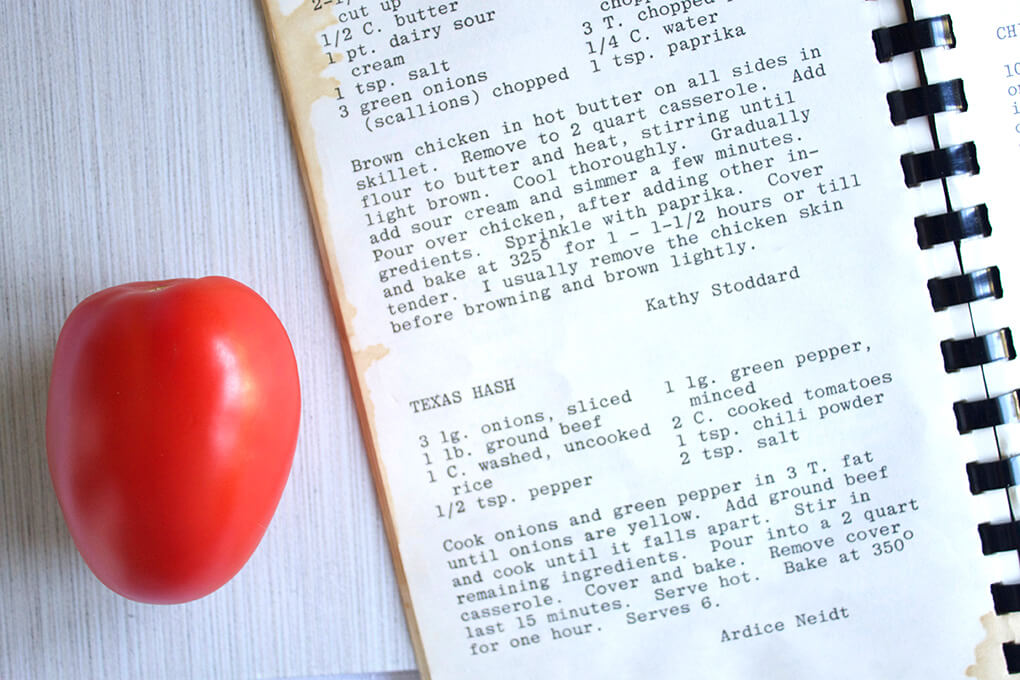 2-1/
cut up
1/2 C. butter
1 pt. dairy sour
cream
1 tsp. salt
3 green onions
(scallions) chopped
3 T. chopped
1/4 C. water
1 tsp. paprika
Brown chicken in hot butter on all sides in
skillet. Remove to 2 quart casserole. Add
flour to butter and heat, stirring until
light brown. Cool thoroughly. Gradually
add sour cream and simmer a few minutes.
Pour over chicken, after adding other in-
gredients. Sprinkle with paprika. Cover
and bake at 325° for 1 - 1-1/2 hours or till
tender. I usually remove the chicken skin
before browning and brown lightly.
Kathy Stoddard
TEXAS HASH
3 lg. onions, sliced
1 lb. ground beef
1 C. washed, uncooked
rice
1/2 tsp. pepper
1 lg. green pepper,
minced
2 C. cooked tomatoes
1 tsp. chili powder
2 tsp. salt
Cook onions and green pepper in 3 T. fat
until onions are yellow. Add ground beef
and cook until it falls apart. Stir in
remaining ingredients. Pour into a 2 quart
casserole. Cover and bake. Remove cover
last 15 minutes. Serve hot. Bake at 350°
for one hour. Serves 6.
Ardice Neidt